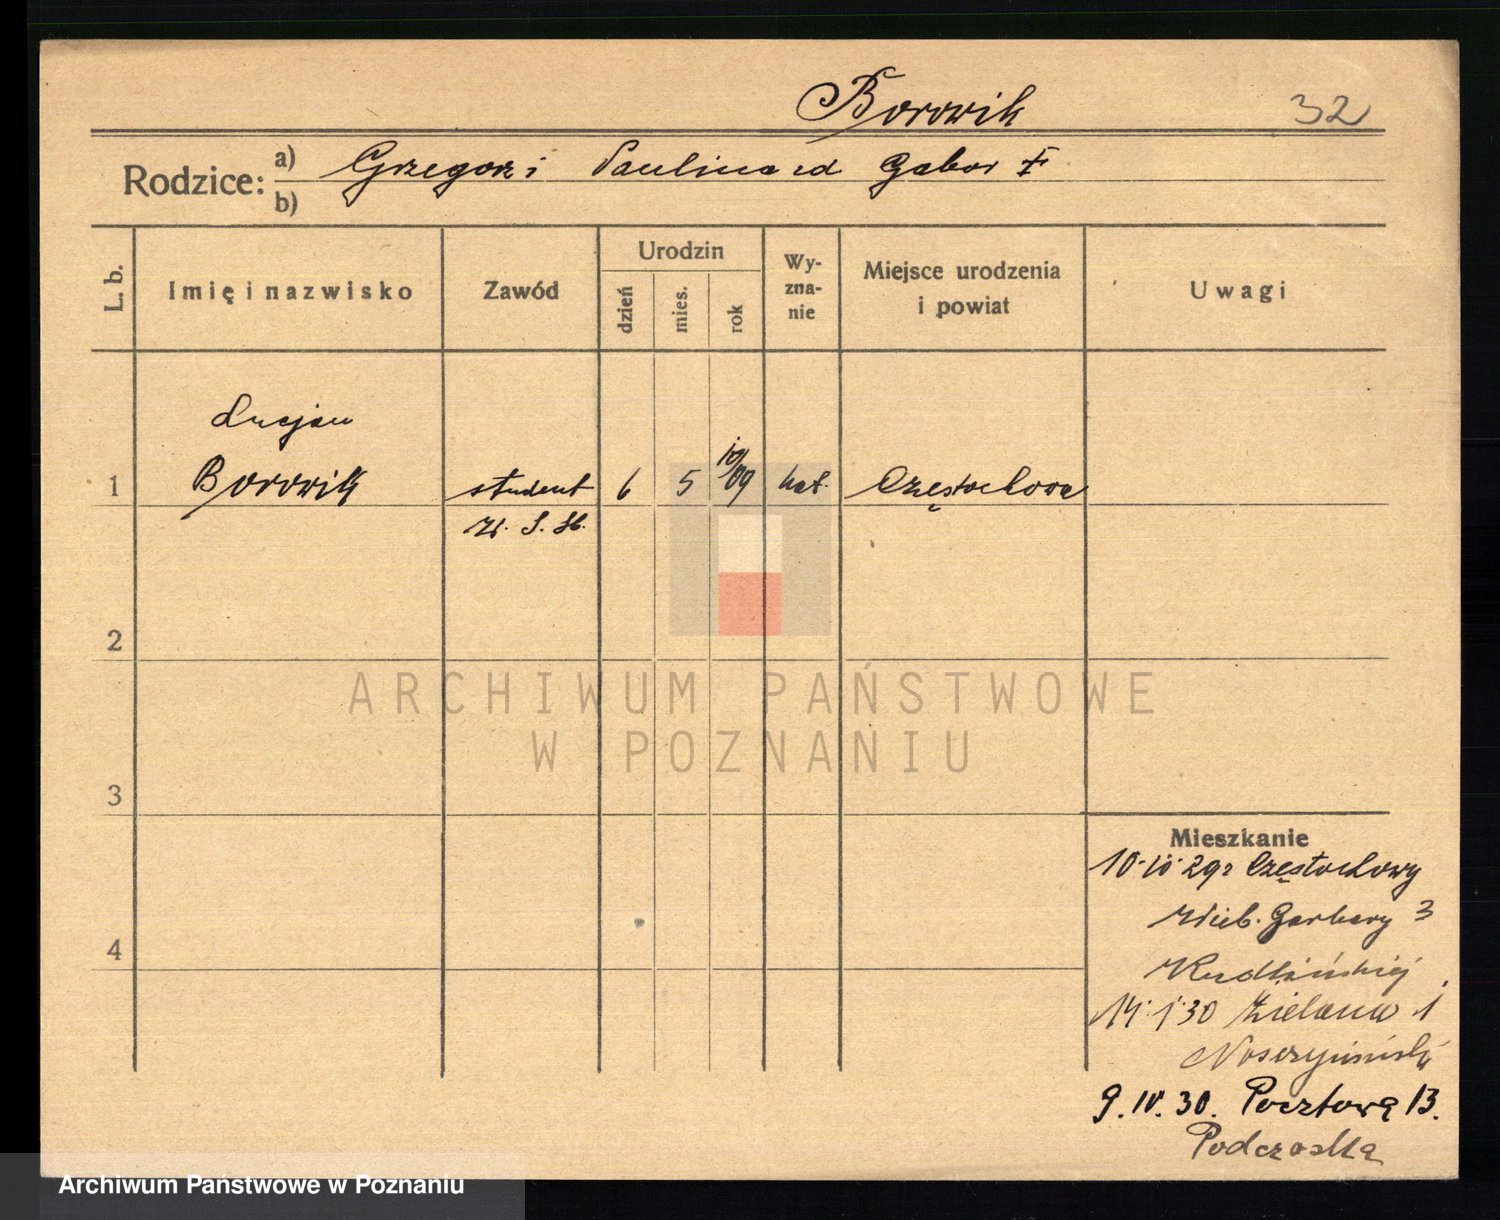 Borowik 32
Rodzice: a) Grzegorz i Paulina zd Gabor
b)
L. b. Imię i nazwisko Zawód Urodzin dzień mies. rok Wy-zna-nie Miejsce urodzenia i powiat Uwagi
Lucjan
1 Borowik student 6 5 09 kat. Częstochowa
W. S. H.
2
ARCHIWUM PAŃSTWOWE
W POZNANIU
3
Mieszkanie
10 29 Częstochowy
Garbary 3
4
14 1 30 Zielona 1
9. IV. 30. Pocztowa 13.
Podczaska
Archiwum Państwowe w Poznaniu